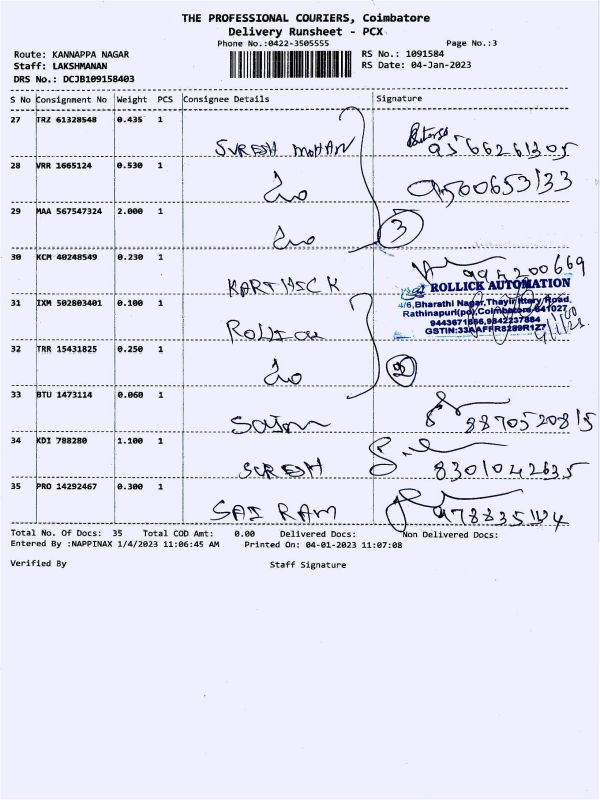 THE PROFESSIONAL COURIERS, Coimbatore
Delivery Runsheet - PCX
Phone No.:0422-3505555
Page No.:3
Route: KANNAPPA NAGAR
RS No.: 1091584
Staff: LAKSHMANAN
RS Date: 04-Jan-2023
DRS No.: DCJB109158403
S No Consignment No Weight PCS Consignee Details Signature
27 TRZ 61328548 0.435 1
SURESH MOHAN 9566261305
28 VRR 1665124 0.530 1
9500653133
29 MAA 567547324 2.000 1
3
30 KCM 40248549 0.230 1
KARTHICK
ROLLICK AUTOMATION
31 IXM 502803401 0.100 1
4/6,Bharathi Nagar,Thayir Ittery Road,
Rathinapuri(po),Coimbatore-641027
9443671666,9842237884
GSTIN:33AAFFR8289R1Z7
32 TRR 15431825 0.250 1
2
33 BTU 1473114 0.060 1
8870520815
34 KDI 788280 1.100 1
SURESH 8301042635
35 PRO 14292467 0.300 1
SAI RAM
Total No. Of Docs: 35 Total COD Amt: 0.00 Delivered Docs: Non Delivered Docs:
Entered By :NAPPINAX 1/4/2023 11:06:45 AM Printed On: 04-01-2023 11:07:08
Verified By Staff Signature